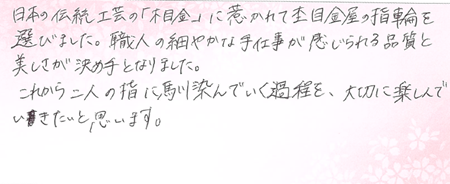 日本の伝統工芸の「木目金」に惹かれて杢目金屋の指輪を
選びました。職人の細やかな手仕事が感じられる品質と
美しさが決め手となりました。
これから二人の指に馴染んでいく過程を、大切に楽しんで
いきたいと思います。